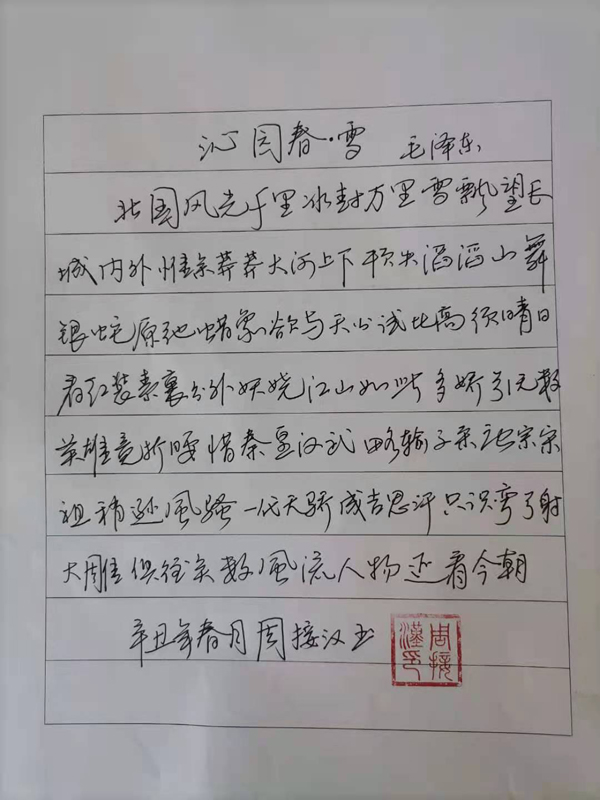 沁园春·雪 毛泽东
北国风光千里冰封万里雪飘望长
城内外惟余莽莽大河上下顿失滔滔山舞
银蛇原驰蜡象欲与天公试比高须晴日
看红装素裹分外妖娆江山如此多娇引无数
英雄竞折腰惜秦皇汉武略输文采唐宗宋
祖稍逊风骚一代天骄成吉思汗只识弯弓射
大雕俱往矣数风流人物还看今朝
辛丑年春月周接汉书
周接漢印